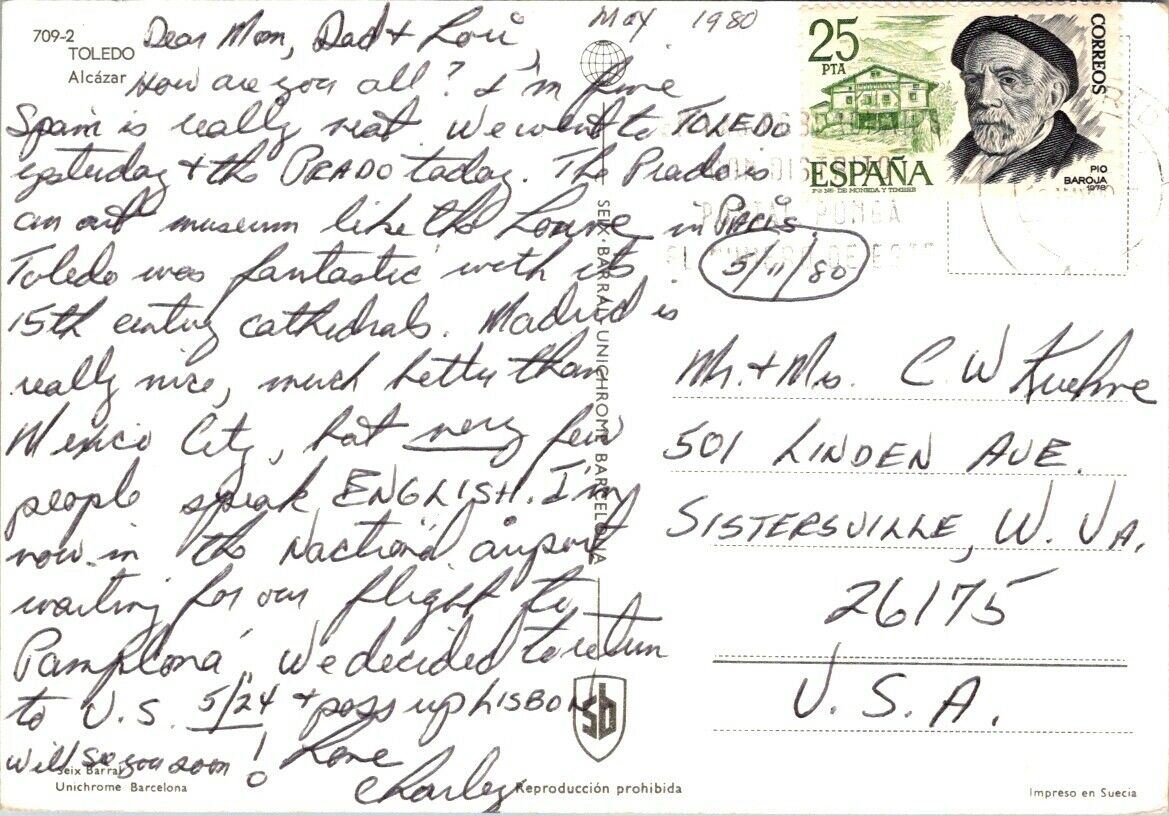 709-2
TOLEDO
Alcázar
May 1980
Dear Mom, Dad + Lori,
How are you all? I'm fine
Spain is really neat. We went to TOLEDO
yesterday + the PRADO today. The Prado is
an art museum like the Louvre in PARIS.
Toledo was fantastic with its
15th century cathedrals. Madrid is
really nice, much better than
Mexico City, but very few
people speak ENGLISH. I'm
now in the Nactional airport
waiting for our flight to
Pamplona. We decided to return
to U.S. 5/24 + pass up LISBON
will see you soon! Love
Charley
5/11/80
25
PTA
CORREOS
ESPAÑA
PIO
BAROJA
1978
F.N. DE MONEDA Y TIMBRE
PONGA
Mr. + Mrs. C W Kuehne
501 LINDEN AVE.
SISTERSVILLE, W. VA.
26175
U.S.A.
SEIX-BARRAL UNICHROME BARCELONA
sb
Seix Barral
Unichrome Barcelona
Reproducción prohibida
Impreso en Suecia